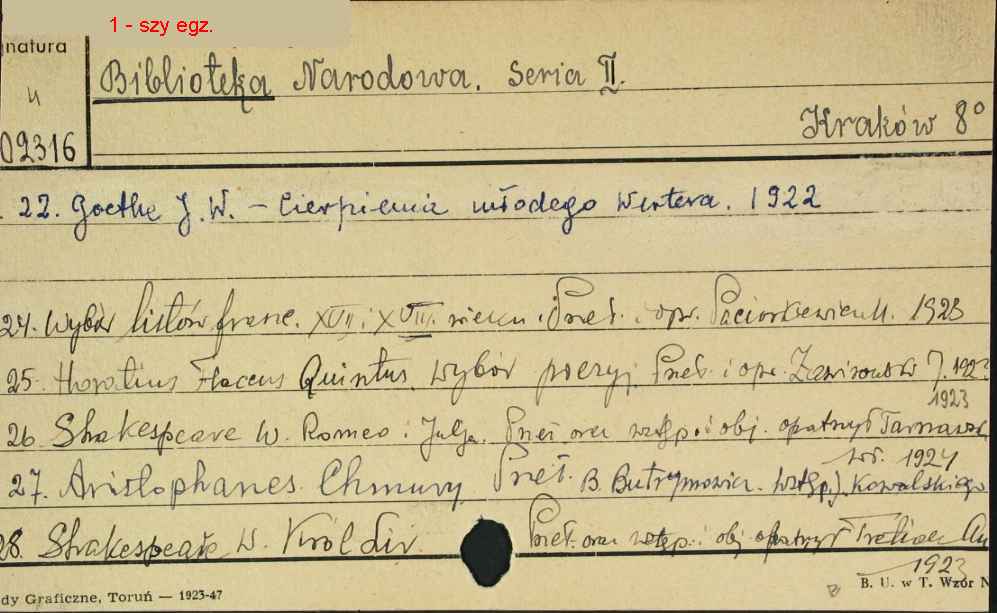 1 - szy egz.
natura
Biblioteka Narodowa. Seria II.
02316
Kraków 8°
22. Goethe J. W. – Cierpienia młodego Wertera. 1922
24. Wybór listów franc. XVII i XVIII. wieku. Przeł. i opr. 1923
25. Horatius Flaccus Quintus. Wybór poezyj. Przeł. i opr. J. 192
1923
26. Shakespeare W. Romeo i Julja. Przeł. oraz wstęp. i obj. opatrzył
wł. 1924
27. Aristophanes. Chmury Przeł. B. Butrymowicz. Wstęp J. Kowalskiego
28. Shakespeare W. Król Lir. Przeł. oraz wstęp. i obj. opatrzył
1923
dy Graficzne, Toruń — 1923-47
B. U. w T. Wzór N